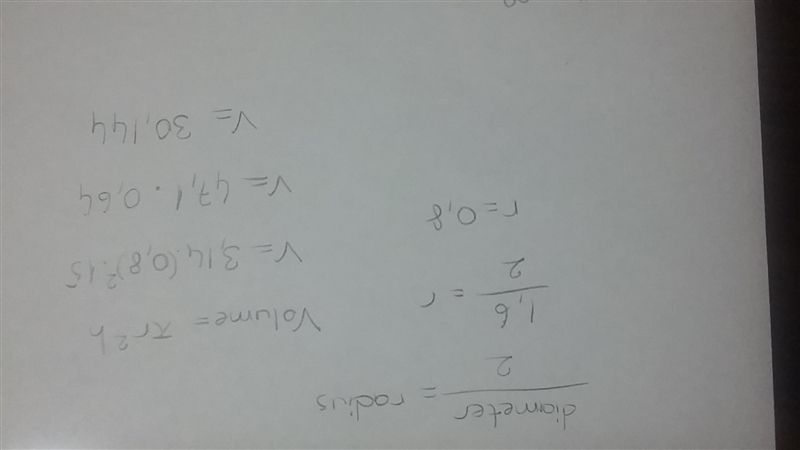 diameter / 2 = radius
1,6 / 2 = r
r = 0,8
Volume = πr²h
V = 3,14.(0,8)².15
V = 47,1 . 0,64
V = 30,144